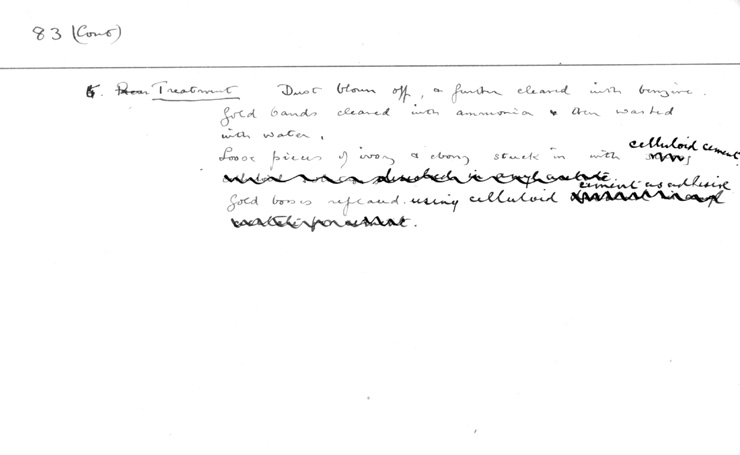 83 (Cont)
Treatment Dust blown off, & further cleaned with benzine.
Gold bands cleaned with ammonia & then washed
with water.
Loose pieces of ivory & ebony stuck in with celluloid cement
Gold bosses replaced using celluloid cement as adhesive